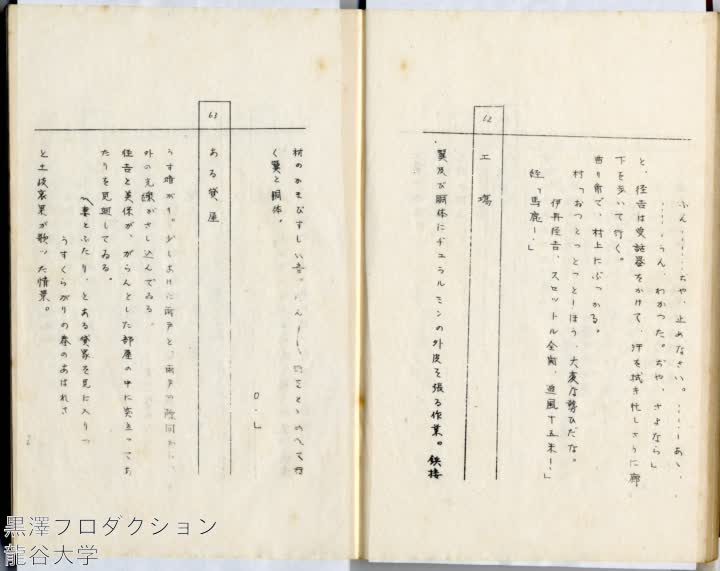 ふん……ぢや、止めなさい。……あゝ、
……うん、わかつた。ぢや、さよなら」
と、径吉は受話器をかけて、汗を拭き忙しさうに廊
下を歩いて行く。
曲り角で、村上にぶつかる。
村「おつとつとつとーほう、大変な勢ひだな。
伊丹径吉、スロットル全開、追風十五米ー」
径「馬鹿ー」
62
工場
翼及び胴体にヂュラルミンの外皮を張る作業。鉄槌
材のかまびすしい音。
く翼と胴体。
O・L
63
ある貸屋
うす暗がり。少しあけた雨戸と、雨戸の隙間から、
外の光線がさし込んでゐる。
径吉と美保が、がらんとした部屋の中に突立つてあ
たりを見廻してゐる。
〽妻とふたり、とある貸家を見に入りつ
うすくらがりの春のあはれさ
と土岐哀果が歌つた情景。
黒澤プロダクション
龍谷大学